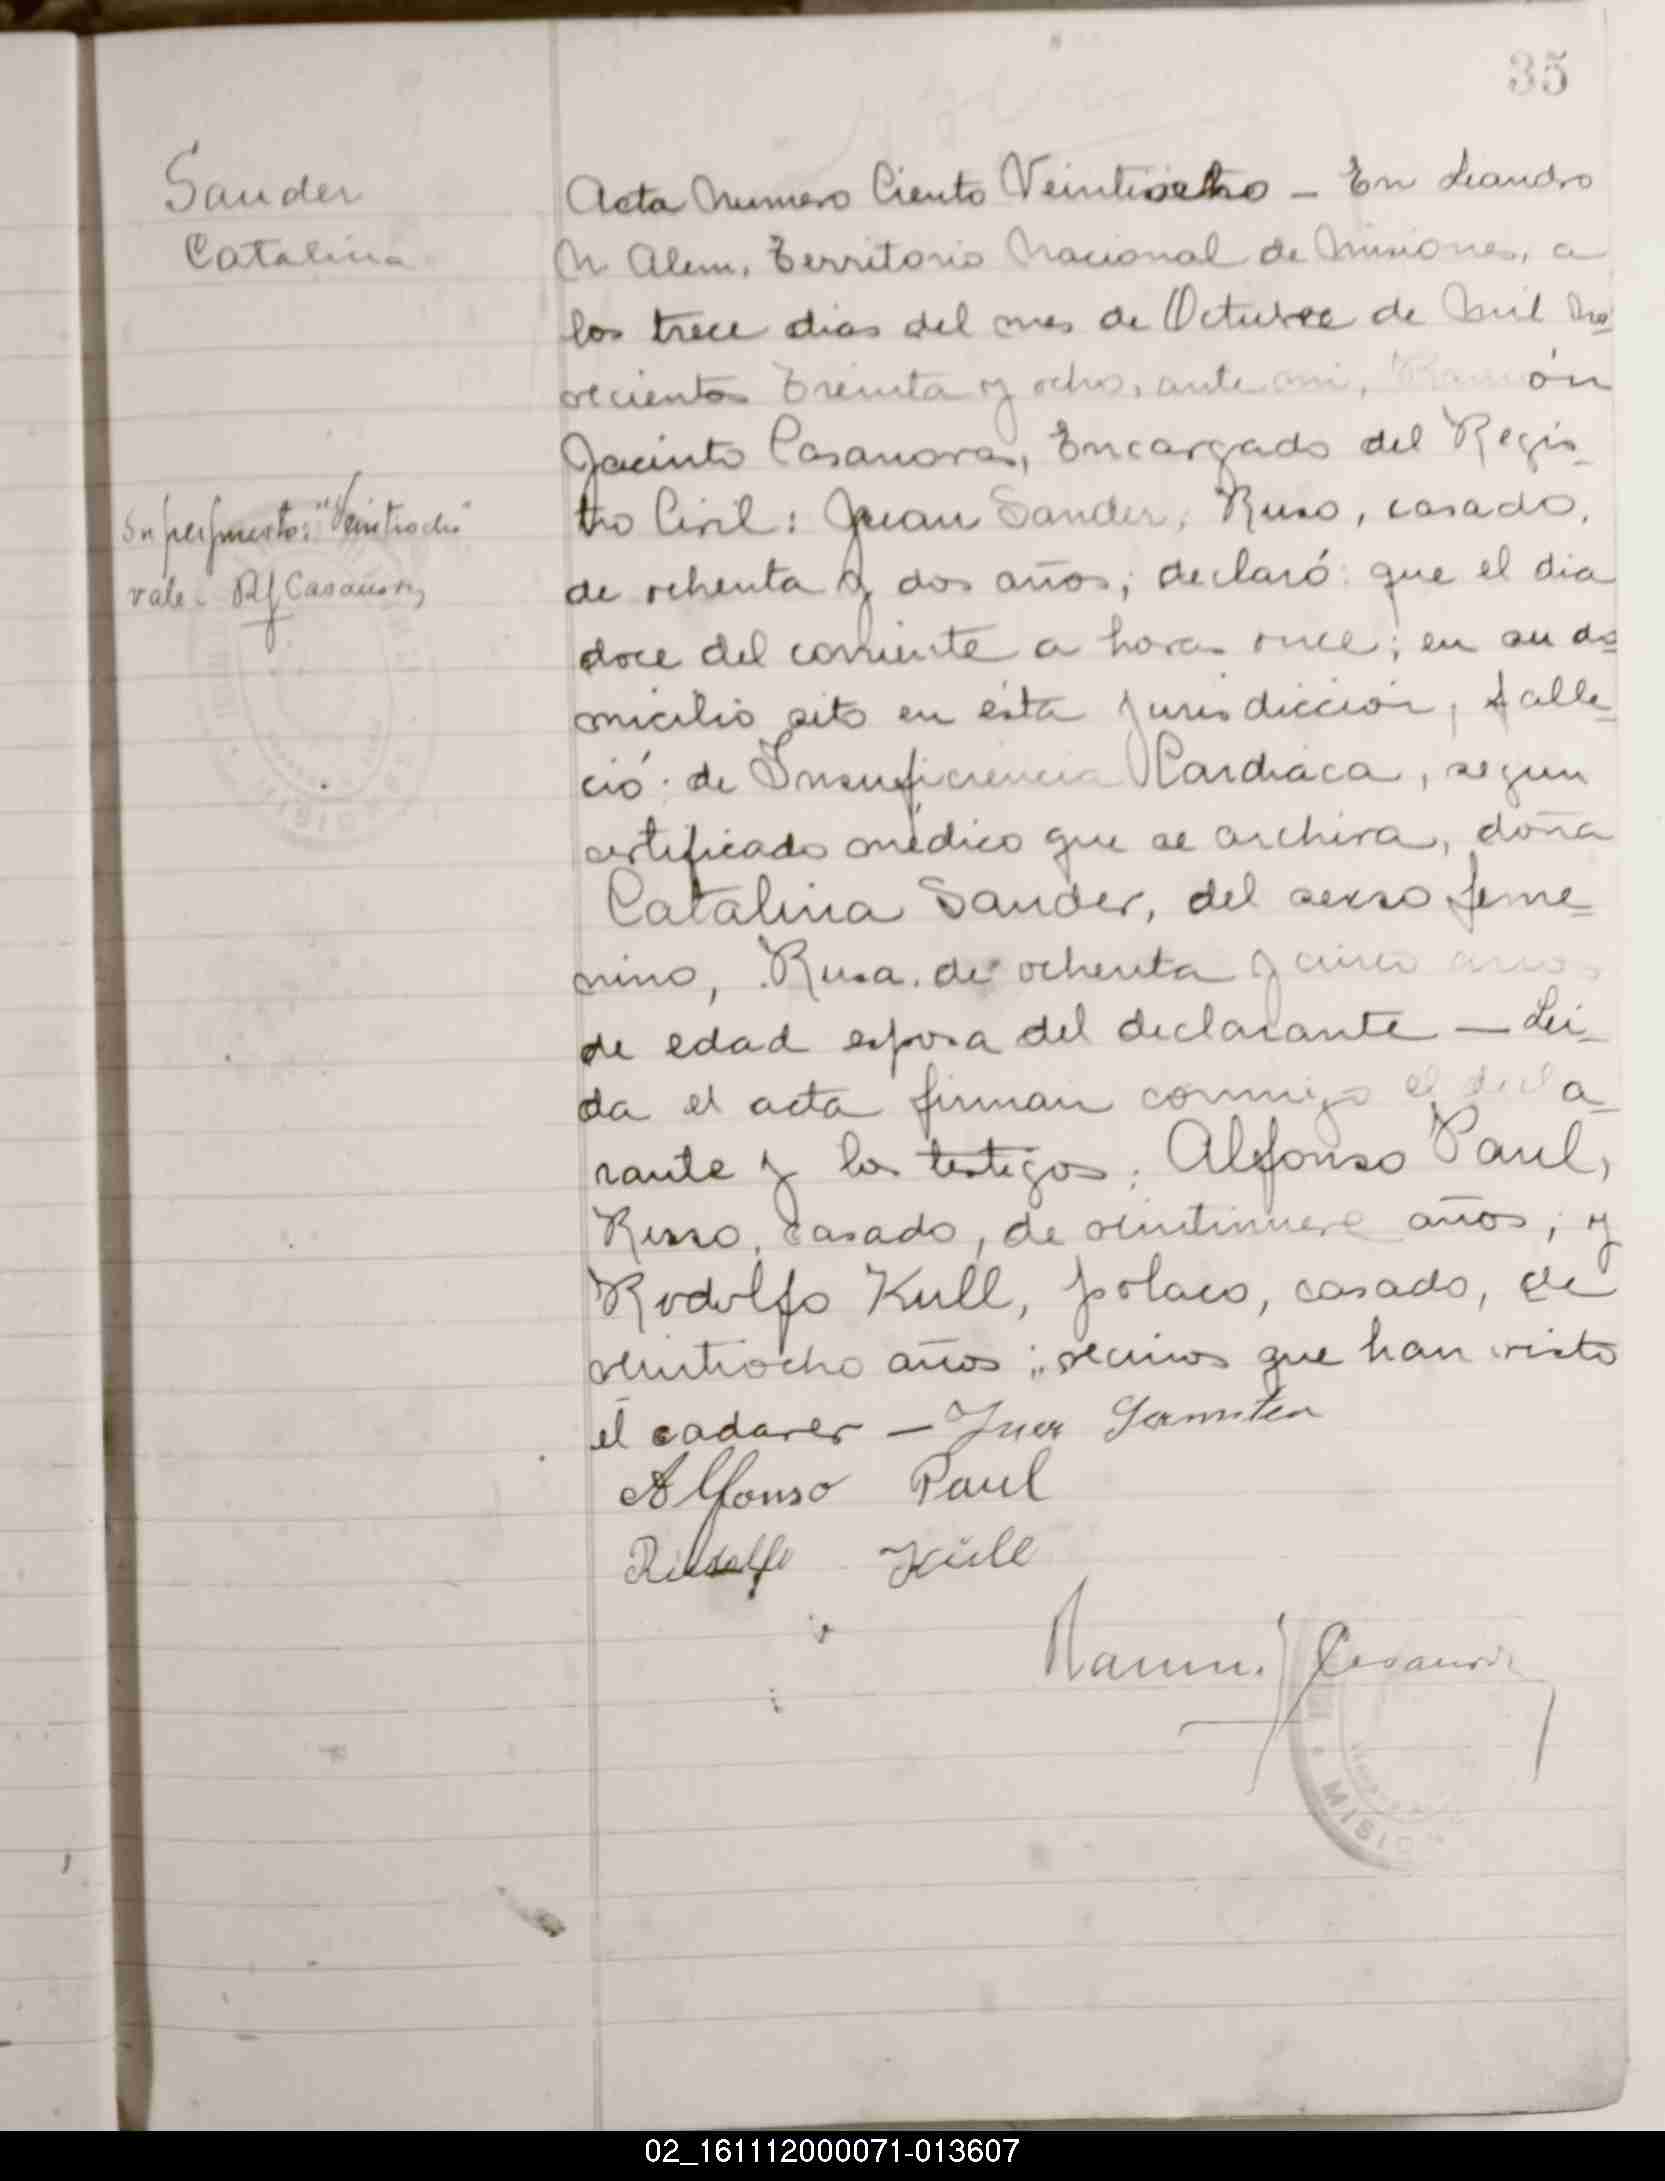 35
Sander
Catalina
Acta Numero Ciento Veintiocho – En Leandro
N. Alem, Territorio Nacional de Misiones, a
los trece dias del mes de Octubre de Mil No=
vecientos Treinta y ocho, ante mi, Ramón
Jacinto Casanova, Encargado del Regis-
tro Civil: Juan Sander, Ruso, casado,
Superpuesto: "Veintiocho"
vale. RJCasanova
de ochenta y dos años; declaró: que el dia
doce del corriente a horas once; en su do=
micilio sito en ésta Jurisdicción, falle=
ció de Insuficiencia Cardiaca, segun
certificado médico que se archiva, doña
Catalina Sander, del sexso feme=
nino, Rusa, de ochenta y cinco años
de edad esposa del declarante – Lei=
da el acta firman conmigo el decla=
rante y los testigos: Alfonso Paul,
Russo, casado, de veintinueve años; y
Rodolfo Kull, polaco, casado, de
veintiocho años; vecinos que han visto
el cadaver –
Alfonso Paul
Rudolf Küll
Ramón J Casanova
MISIO
02_161112000071-013607